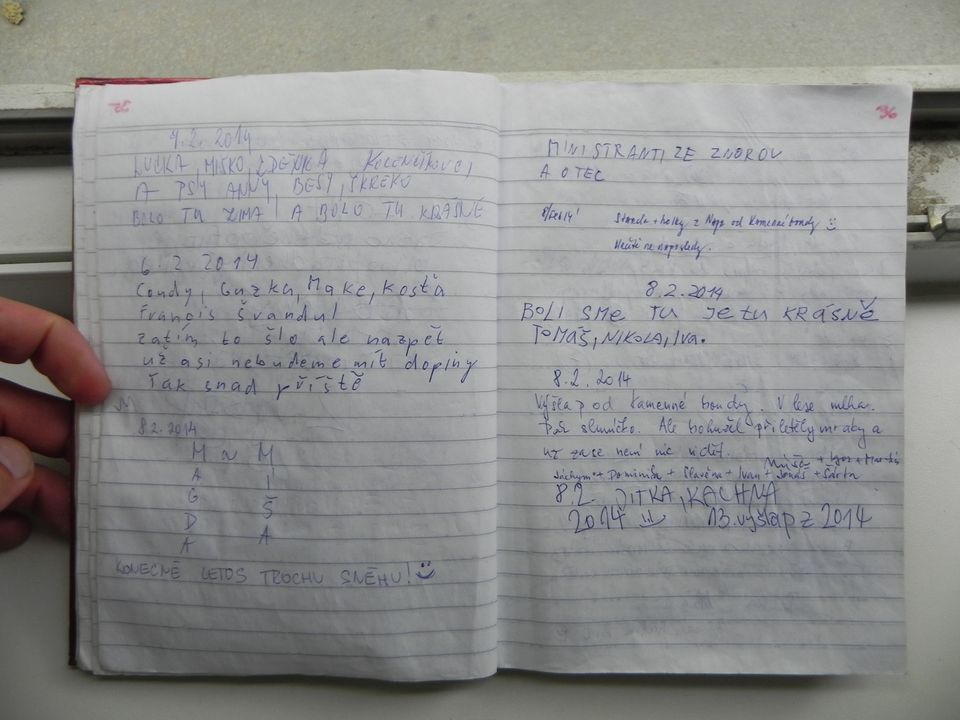 35
4.2.2014
LUCKA, MIŠKO, ZDENKA
A PSY ANNY, BESY, ŠKREKO
BOLO TU ZIMA A BOLO TU KRÁSNE
6.2.2014
Condy, Guzka, Make, Kosťa
Francis Švanda!
zatím to šlo ale nazpět
už asi nebudeme mít dopiny
Tak snad příště
8.2.2014
M a M
A I
G Š
D A
A
KONEČNĚ LETOS TROCHU SNĚHU!
36
MINISTRANTI ZE ZNOROV
A OTEC
Standa + holky z od Kamenné boudy
naposledy.
8.2.2014
BOLI SME TU JE TU KRÁSNĚ
TOMÁŠ, NIKOLA, IVA.
8.2.2014
Výšlap od Kamenné boudy. V lese mlha.
Pak sluníčko. Ale bohužel přiletěly mraky a
už zase není nic vidět.
Jáchym + Dominika + Slavěna + Ivan + Jonáš + Šárka
8.2 JITKA, KACHNA
2014 13. výšlap z 2014